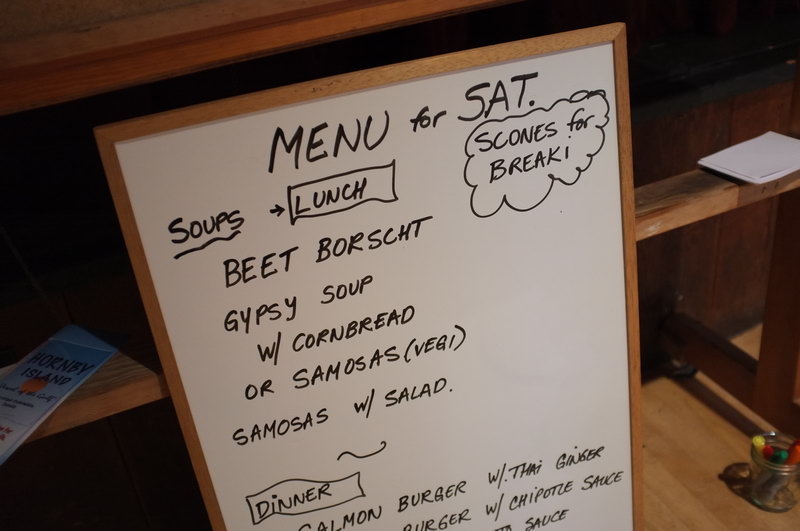 MENU for SAT.
SCONES for
BREAK!
SOUPS → LUNCH
BEET BORSCHT
GYPSY SOUP
W/ CORNBREAD
OR SAMOSAS (VEGI)
SAMOSAS W/ SALAD.
DINNER
SALMON BURGER W. THAI GINGER
BURGER W/ CHIPOTLE SAUCE
SAUCE
HORNBY
ISLAND